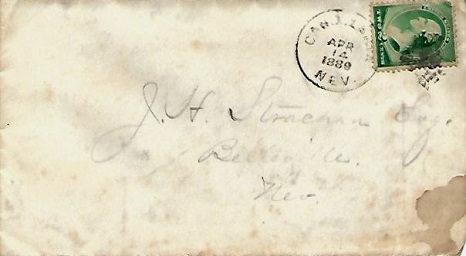 APR
14
1889
NEV.
J. H. Strachan Esq.
Belleville.
Nev.